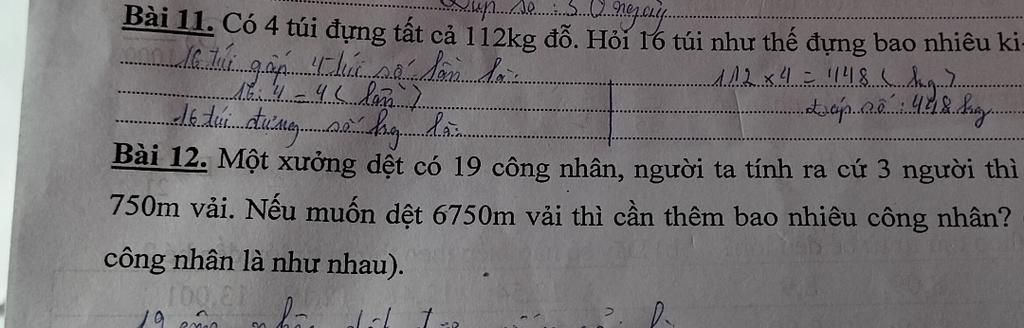 số : 30 ngày
Bài 11. Có 4 túi đựng tất cả 112kg đỗ. Hỏi 16 túi như thế đựng bao nhiêu ki
16 túi gấp 4 túi số lần là:
16 : 4 = 4 ( lần )
16 túi đựng số kg là:
112 x 4 = 448 ( kg )
Đáp số : 448 kg
Bài 12. Một xưởng dệt có 19 công nhân, người ta tính ra cứ 3 người thì
750m vải. Nếu muốn dệt 6750m vải thì cần thêm bao nhiêu công nhân?
công nhân là như nhau).
19 công nhân dệt